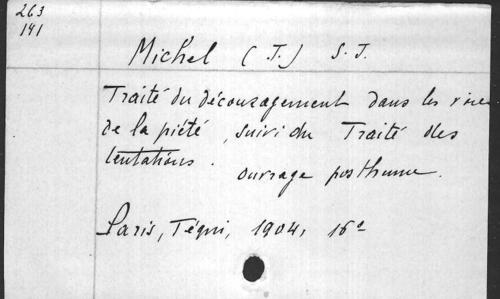 263
141
Michel (J.) S.J.
Traité du découragement dans les voies
de la piété, suivi du Traité des
tentations.
ouvrage posthume.
Paris, Téqui, 1904, 16°